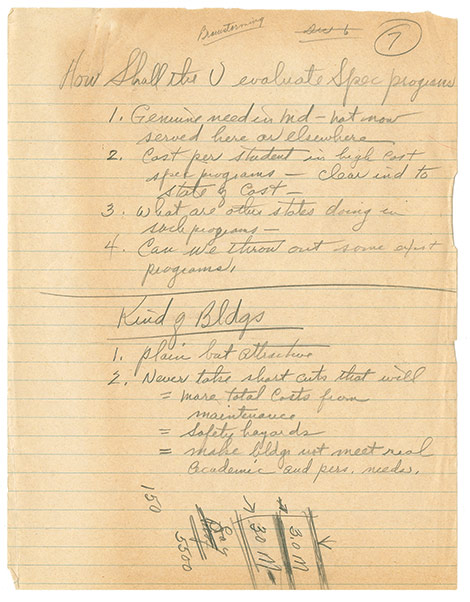 Brainstorming
Dec 6
7
How Shall the U evaluate Spec programs
1. Genuine need in Md - not now
served here or elsewhere
2. Cost per student in high cost
spec programs - clear ind to
state of cost -
3. What are other states doing in
such programs -
4. Can we throw out some exist
programs.
Kind of Bldgs
1. plain but attractive
2. Never take short cuts that will
= more total costs from
maintenance
= Safety hazards
= make bldgs not meet real
academic and pers. needs.
150
5500
30 M
30 M